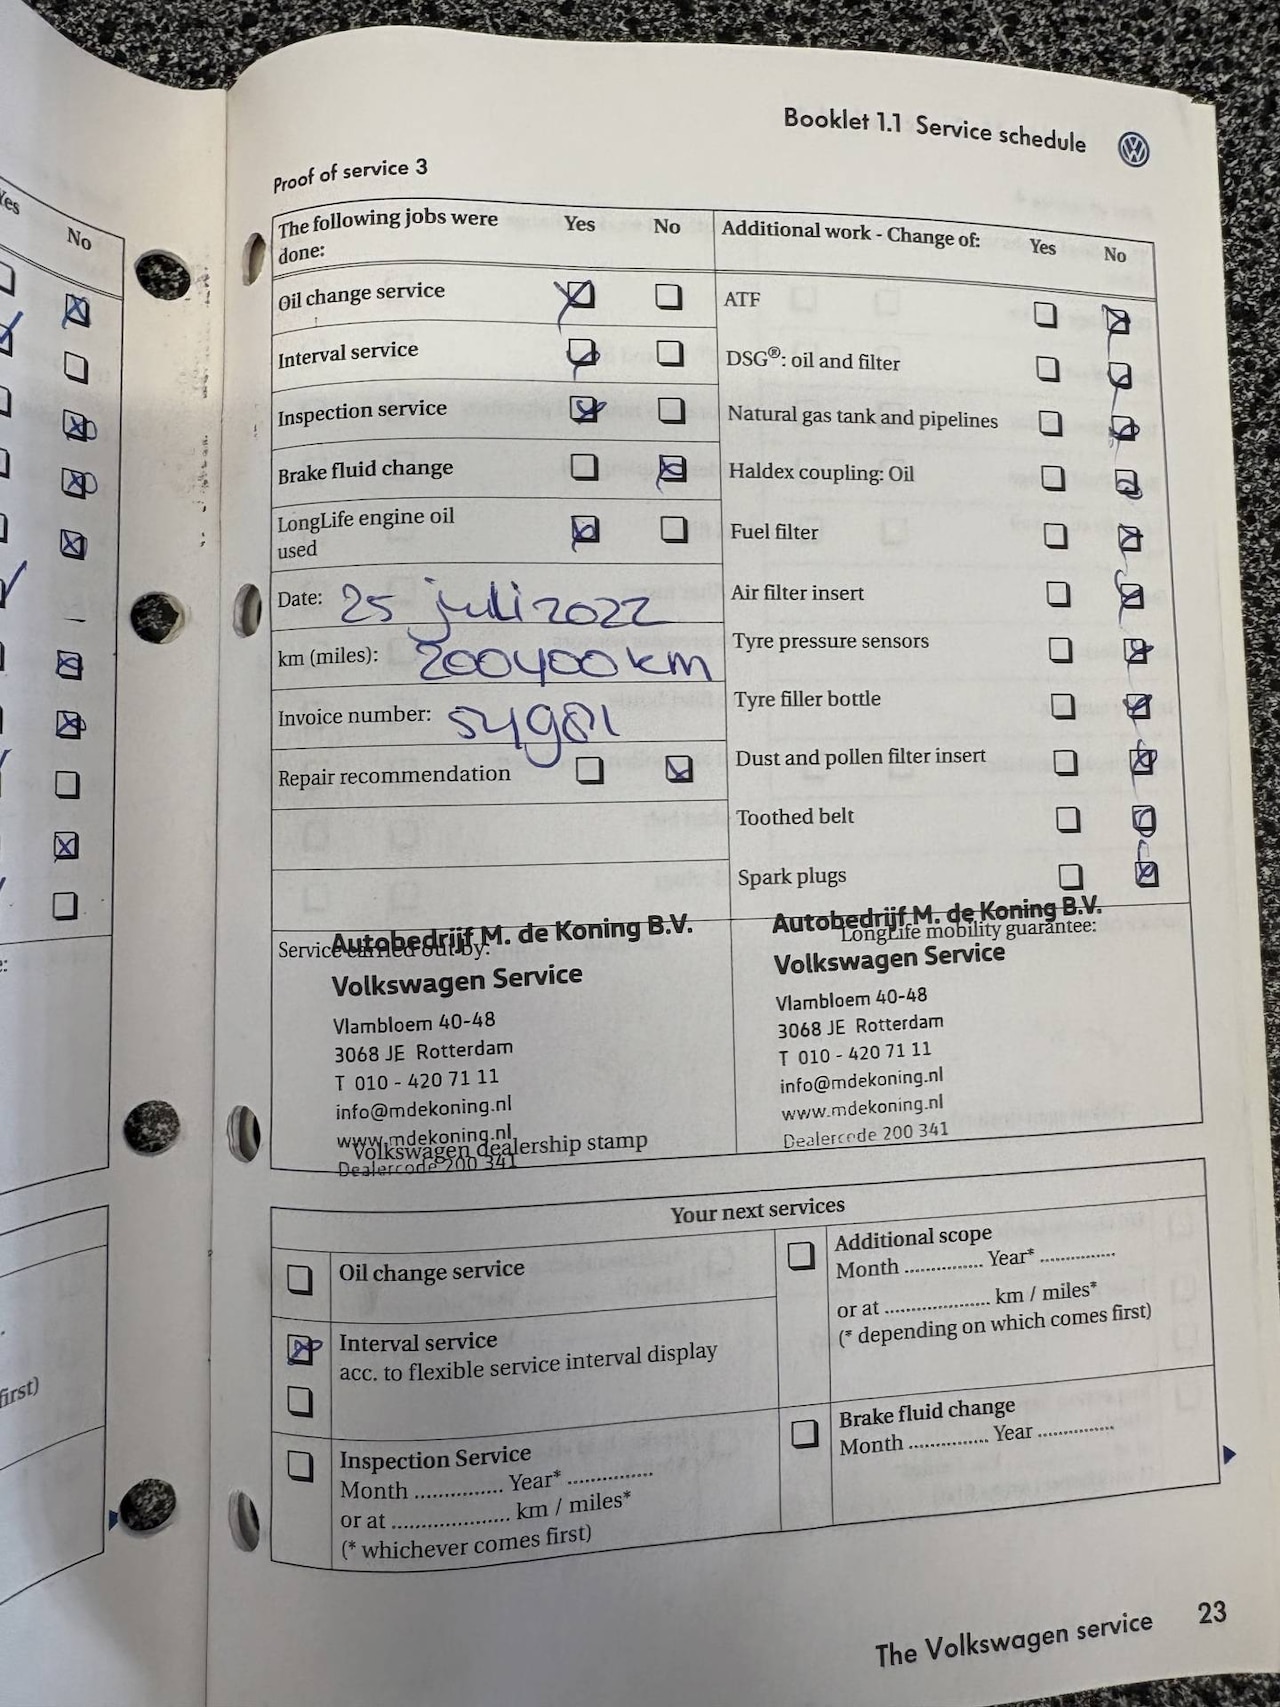 Booklet 1.1 Service schedule
Yes
No
e:
first)
Proof of service 3
The following jobs were done: Yes No
Oil change service
Interval service
Inspection service
Brake fluid change
LongLife engine oil used
Date: 25 juli 2022
km (miles): 200400 km
Invoice number: 54981
Repair recommendation
Additional work - Change of: Yes No
ATF
DSG®: oil and filter
Natural gas tank and pipelines
Haldex coupling: Oil
Fuel filter
Air filter insert
Tyre pressure sensors
Tyre filler bottle
Dust and pollen filter insert
Toothed belt
Spark plugs
Service carried out by:
Autobedrijf M. de Koning B.V.
Volkswagen Service
Vlambloem 40-48
3068 JE Rotterdam
T 010 - 420 71 11
info@mdekoning.nl
www.mdekoning.nl
Volkswagen dealership stamp
Dealercode 200 341
Autobedrijf M. de Koning B.V.
LongLife mobility guarantee:
Volkswagen Service
Vlambloem 40-48
3068 JE Rotterdam
T 010 - 420 71 11
info@mdekoning.nl
www.mdekoning.nl
Dealercode 200 341
Your next services
Oil change service
Interval service
acc. to flexible service interval display
Inspection Service
Month ............... Year* ..............
or at .................... km / miles*
(* whichever comes first)
Additional scope
Month ............. Year* .............
or at .................... km / miles*
(* depending on which comes first)
Brake fluid change
Month .............. Year .............
The Volkswagen service 23